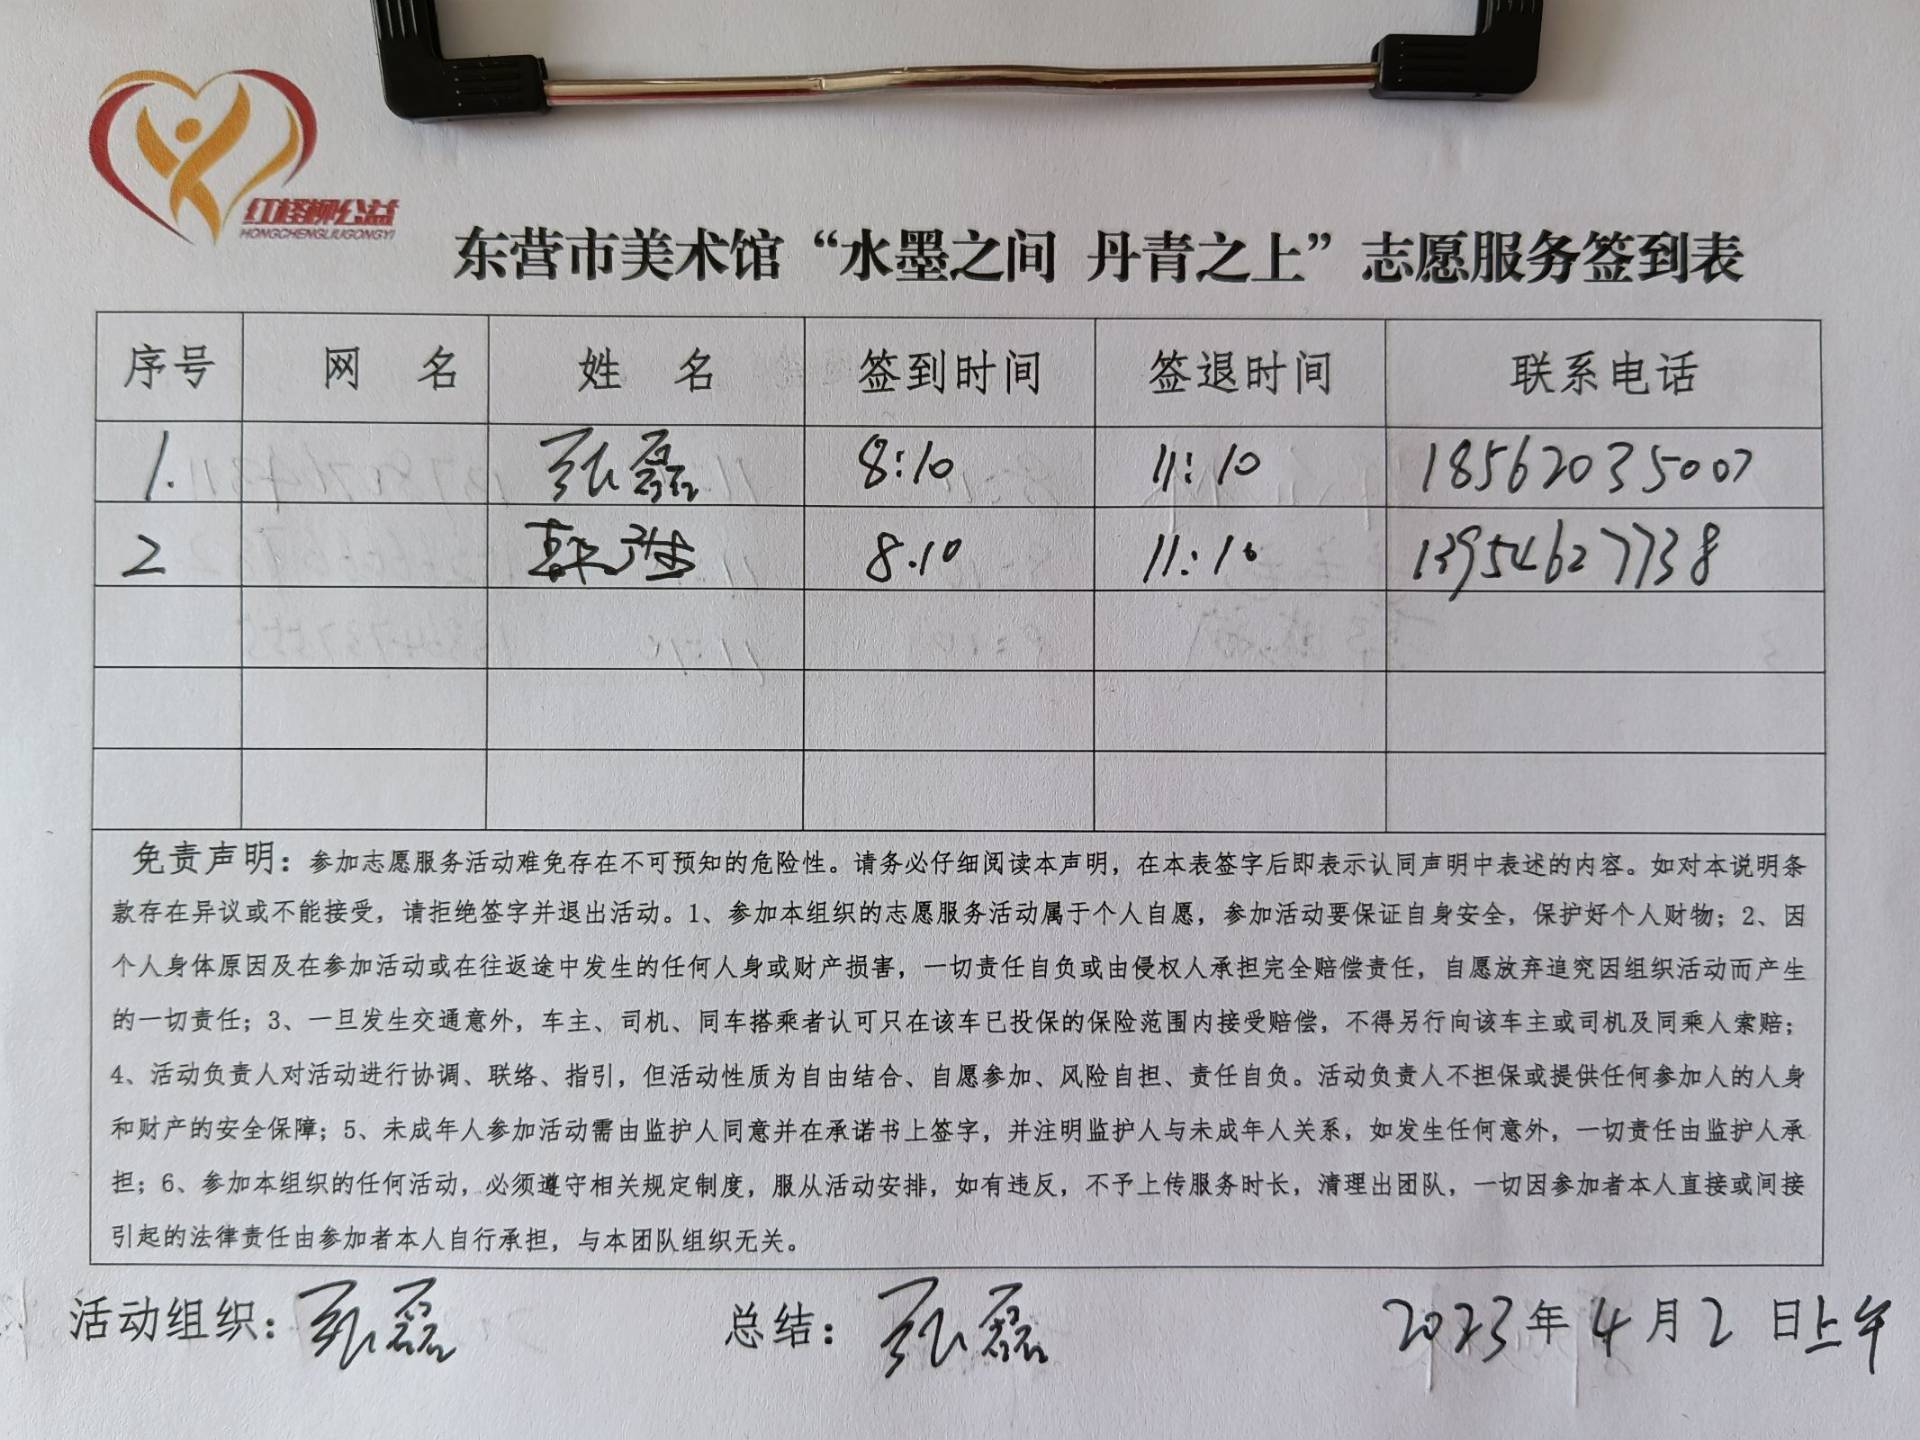 红柽柳公益
HONGCHENGLIUGONGYI
东营市美术馆“水墨之间 丹青之上”志愿服务签到表
序号 网 名 姓 名 签到时间 签退时间 联系电话
1. 张磊 8:10 11:10 18562035007
2 8.10 11:10 13954627738
免责声明：参加志愿服务活动难免存在不可预知的危险性。请务必仔细阅读本声明，在本表签字后即表示认同声明中表述的内容。如对本说明条
款存在异议或不能接受，请拒绝签字并退出活动。1、参加本组织的志愿服务活动属于个人自愿，参加活动要保证自身安全，保护好个人财物；2、因
个人身体原因及在参加活动或在往返途中发生的任何人身或财产损害，一切责任自负或由侵权人承担完全赔偿责任，自愿放弃追究因组织活动而产生
的一切责任；3、一旦发生交通意外，车主、司机、同车搭乘者认可只在该车已投保的保险范围内接受赔偿，不得另行向该车主或司机及同乘人索赔；
4、活动负责人对活动进行协调、联络、指引，但活动性质为自由结合、自愿参加、风险自担、责任自负。活动负责人不担保或提供任何参加人的人身
和财产的安全保障；5、未成年人参加活动需由监护人同意并在承诺书上签字，并注明监护人与未成年人关系，如发生任何意外，一切责任由监护人承
担；6、参加本组织的任何活动，必须遵守相关规定制度，服从活动安排，如有违反，不予上传服务时长，清理出团队，一切因参加者本人直接或间接
引起的法律责任由参加者本人自行承担，与本团队组织无关。
活动组织：张磊 总结：张磊 2023年4月2日上午